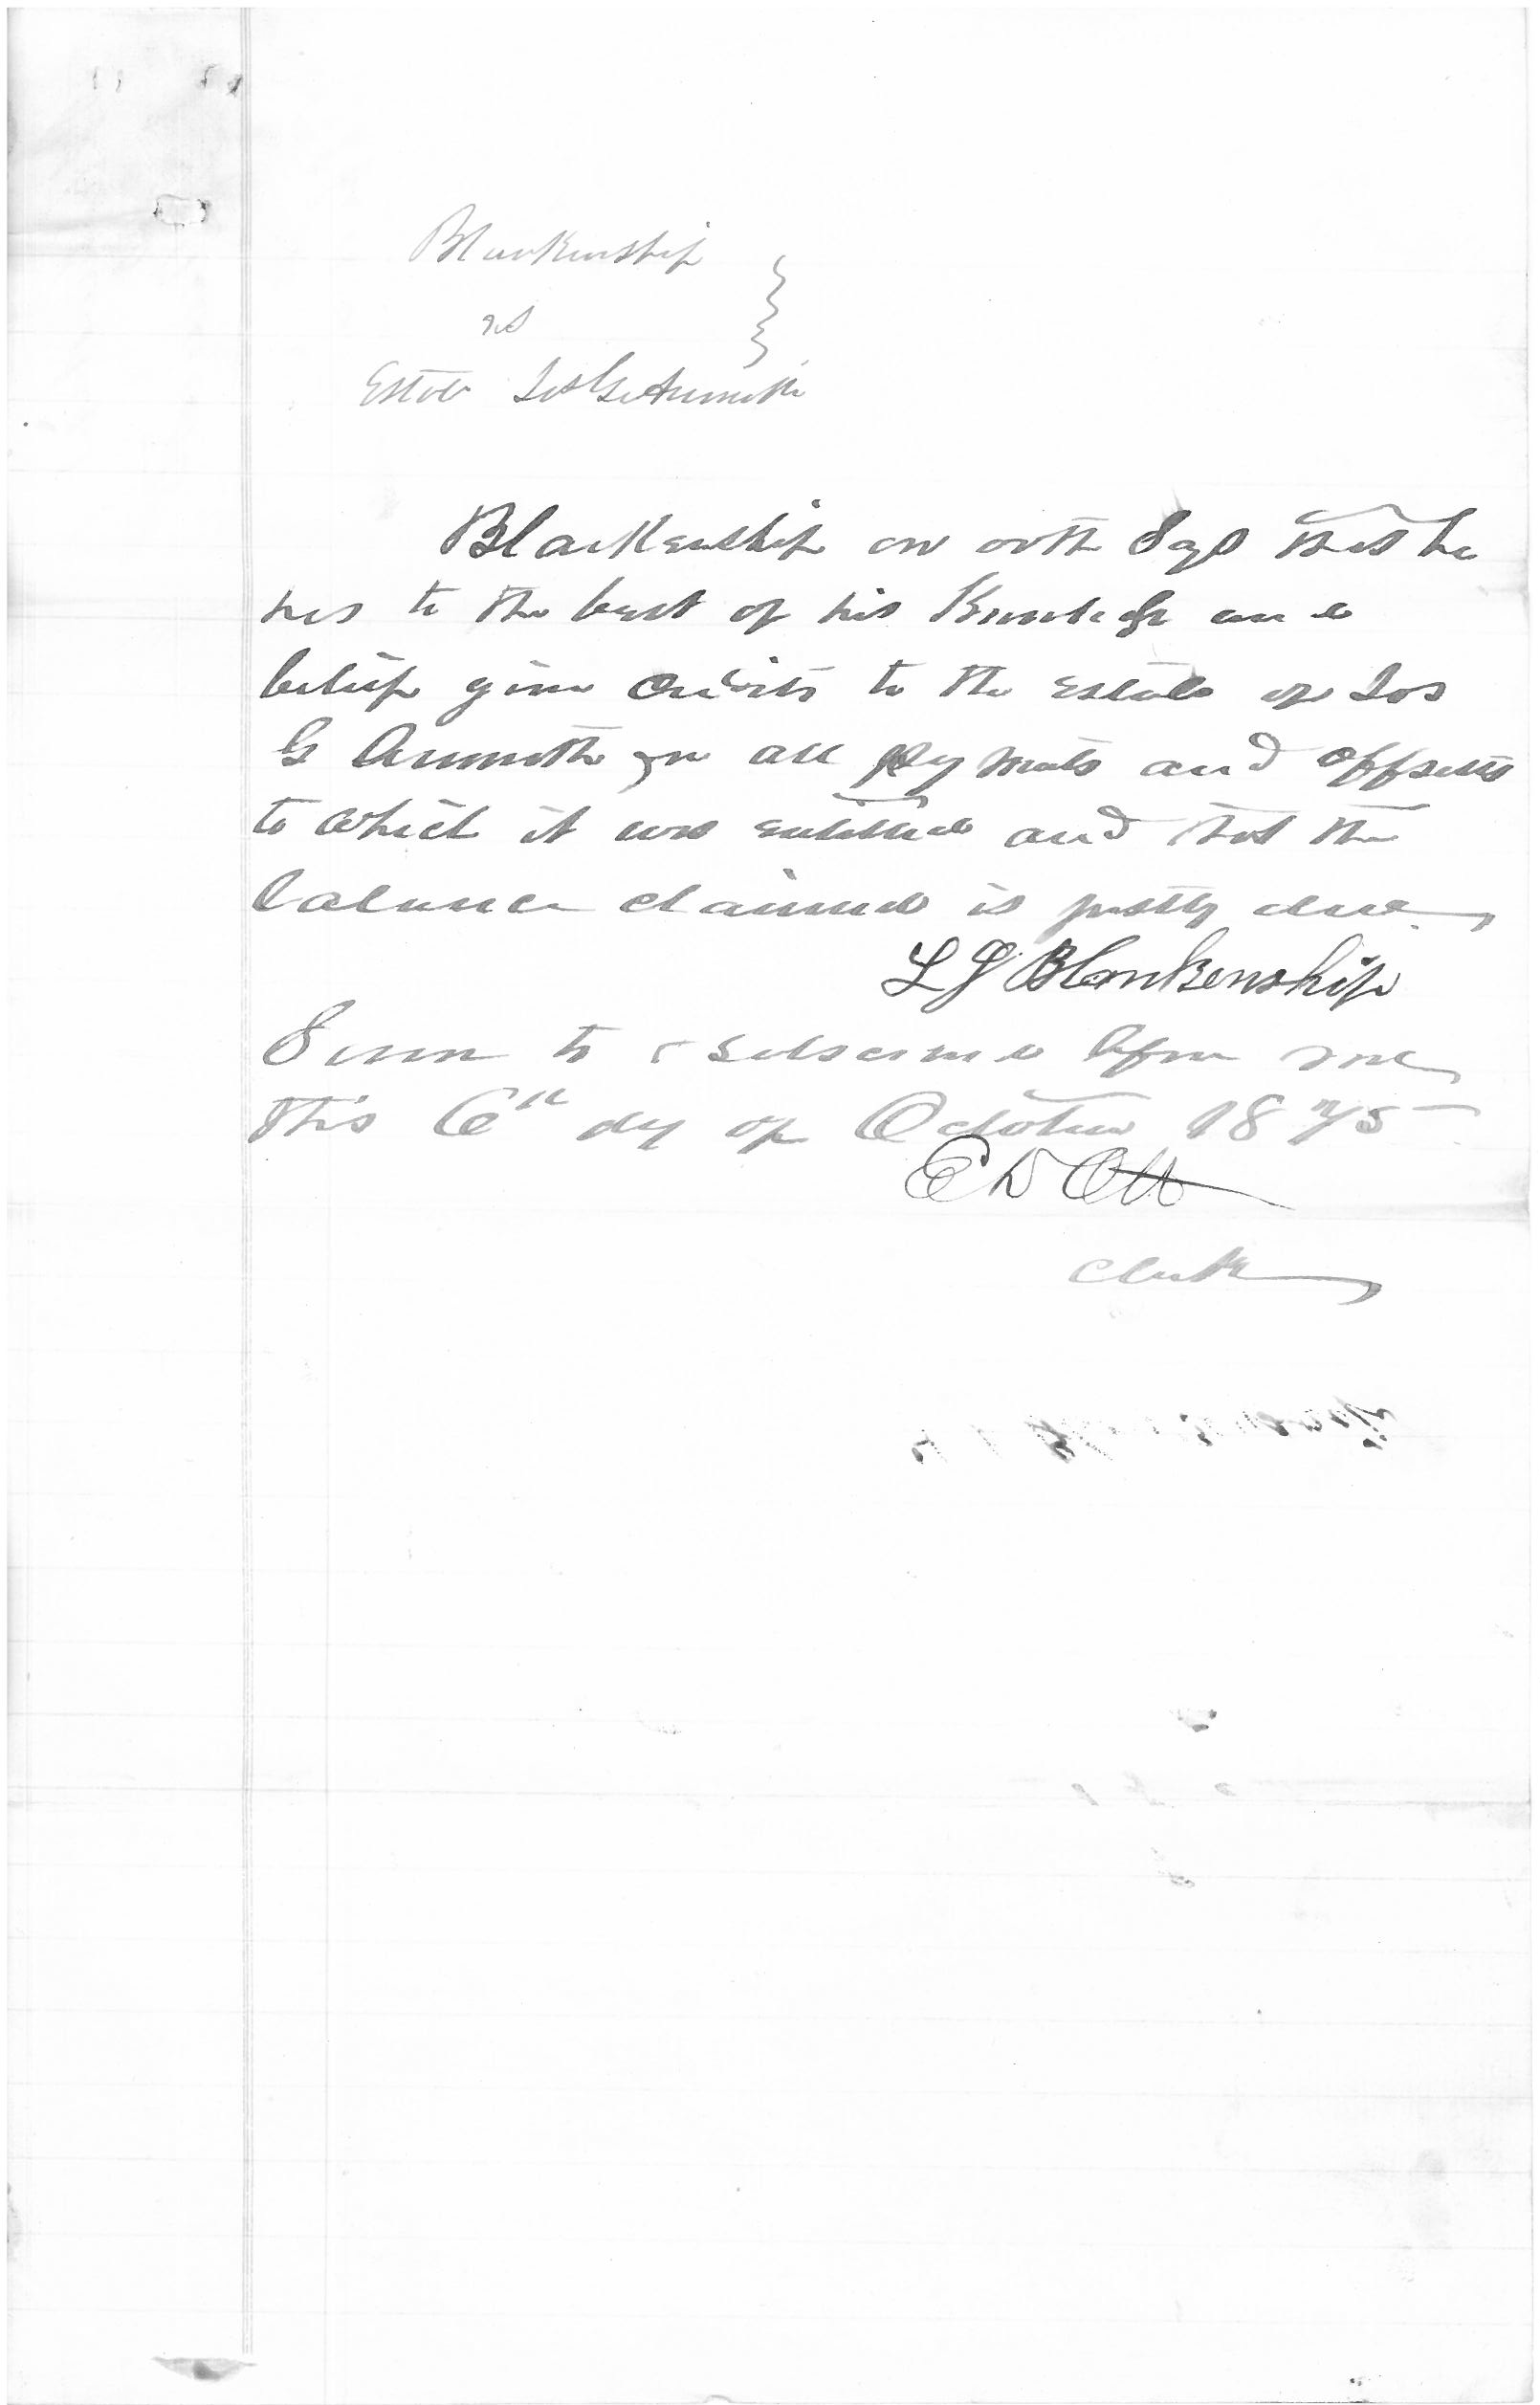 Blankenship
vs
Estate Jos G Armuth
Blankenship on oath Says that he
has to the best of his Knowledge and
belief given Credits to the estate of Jos
G Armuth for all payments and offsetts
to which it was entitled and that the
balance claimed is justly due
L J Blankenship
Sworn to & subscribed before me
this 6th day of October 1875
E D Ott
clerk